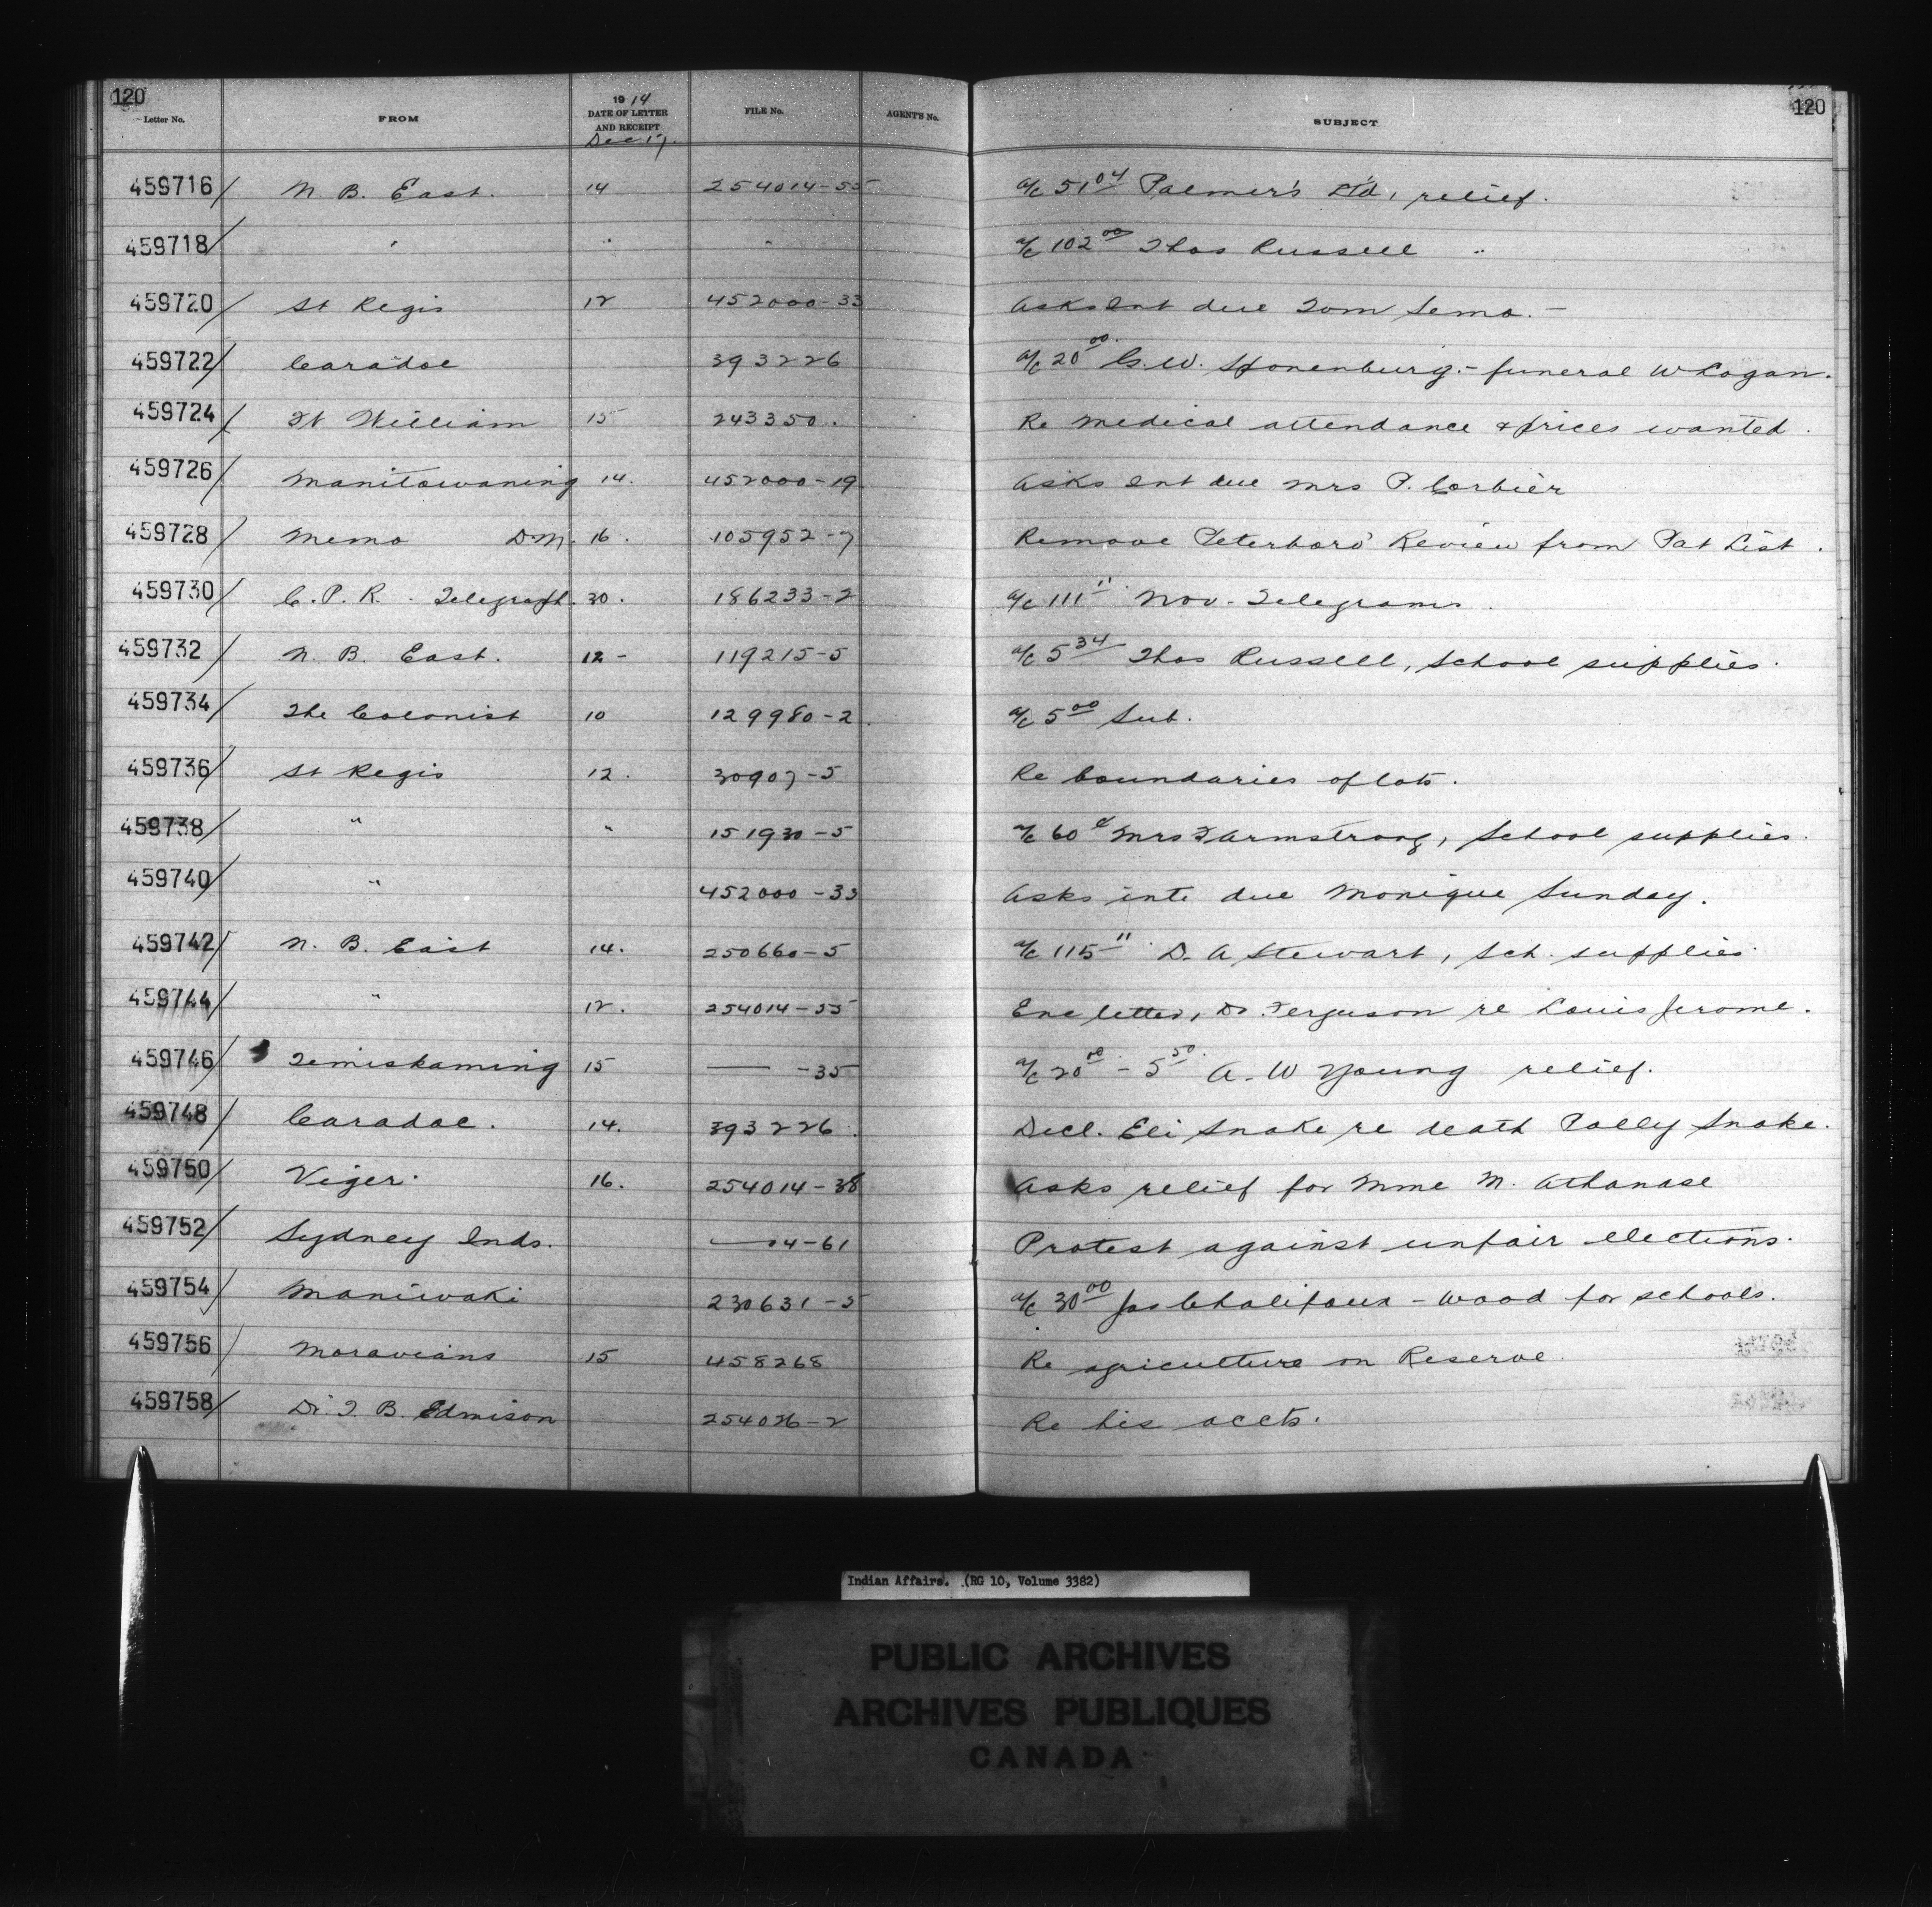 120 120
Letter No. FROM 1914 DATE OF LETTER AND RECEIPT Dec 17. FILE No. AGENT'S No. SUBJECT
459716/ N. B. East. 14 254014-55 a/c 51.04 Palmer's Ltd, relief.
459718/ " " " a/c 102.00 Thos Russell "
459720/ St Regis 12 452000-33 Asks Int due Tom Semo. -
459722/ Caradoc 393226 a/c 20.00 G.W. Stonenburg. - funeral W Logan.
459724/ Ft William 15 243350. Re medical attendance & prices wanted.
459726/ Manitowaning 14. 452000-19 Asks Int due Mrs P. Corbier
459728/ Memo D.M. 16. 105952-7 Remove Peterboro' Review from Pat List.
459730/ C.P.R. - Telegraph. 30. 186233-2 a/c 1.11 Nov. Telegrams.
459732/ N. B. East. 12- 119215-5 a/c 5.34 Thos Russell, School supplies.
459734/ The Colonist 10 129980-2. a/c 5.00 Sub.
459736/ St Regis 12. 30907-5 Re boundaries of lots.
459738/ " " 151930-5 a/c 60¢ Mrs Armstrong, School supplies.
459740/ " 452000-33 Asks int. due Monique Sunday.
459742/ N. B. East 14. 250660-5 a/c 115.11 D. A Stewart, Sch. supplies.
459744/ " 12. 254014-55 Enc letter, Dr. Ferguson re Louis Jerome.
459746/ Temiskaming 15 —— -35 a/c 20.00 - 5.50 A. W Young relief.
459748/ Caradoc. 14. 393226. Decl. Eli Snake re death Polly Snake.
459750/ Viger. 16. 254014-38 Asks relief for Mme M. Athanase
459752/ Sydney Inds. ——4-61 Protest against unfair elections.
459754/ Maniwaki 230631-5 a/c 30.00 Jos Chalifoux - Wood for schools.
459756/ Moravians 15 458268 Re agriculture on Reserve
459758/ Dr. T. B. Edmison 254026-2 Re his accts.
Indian Affairs. (RG 10, Volume 3382)
PUBLIC ARCHIVES
ARCHIVES PUBLIQUES
CANADA